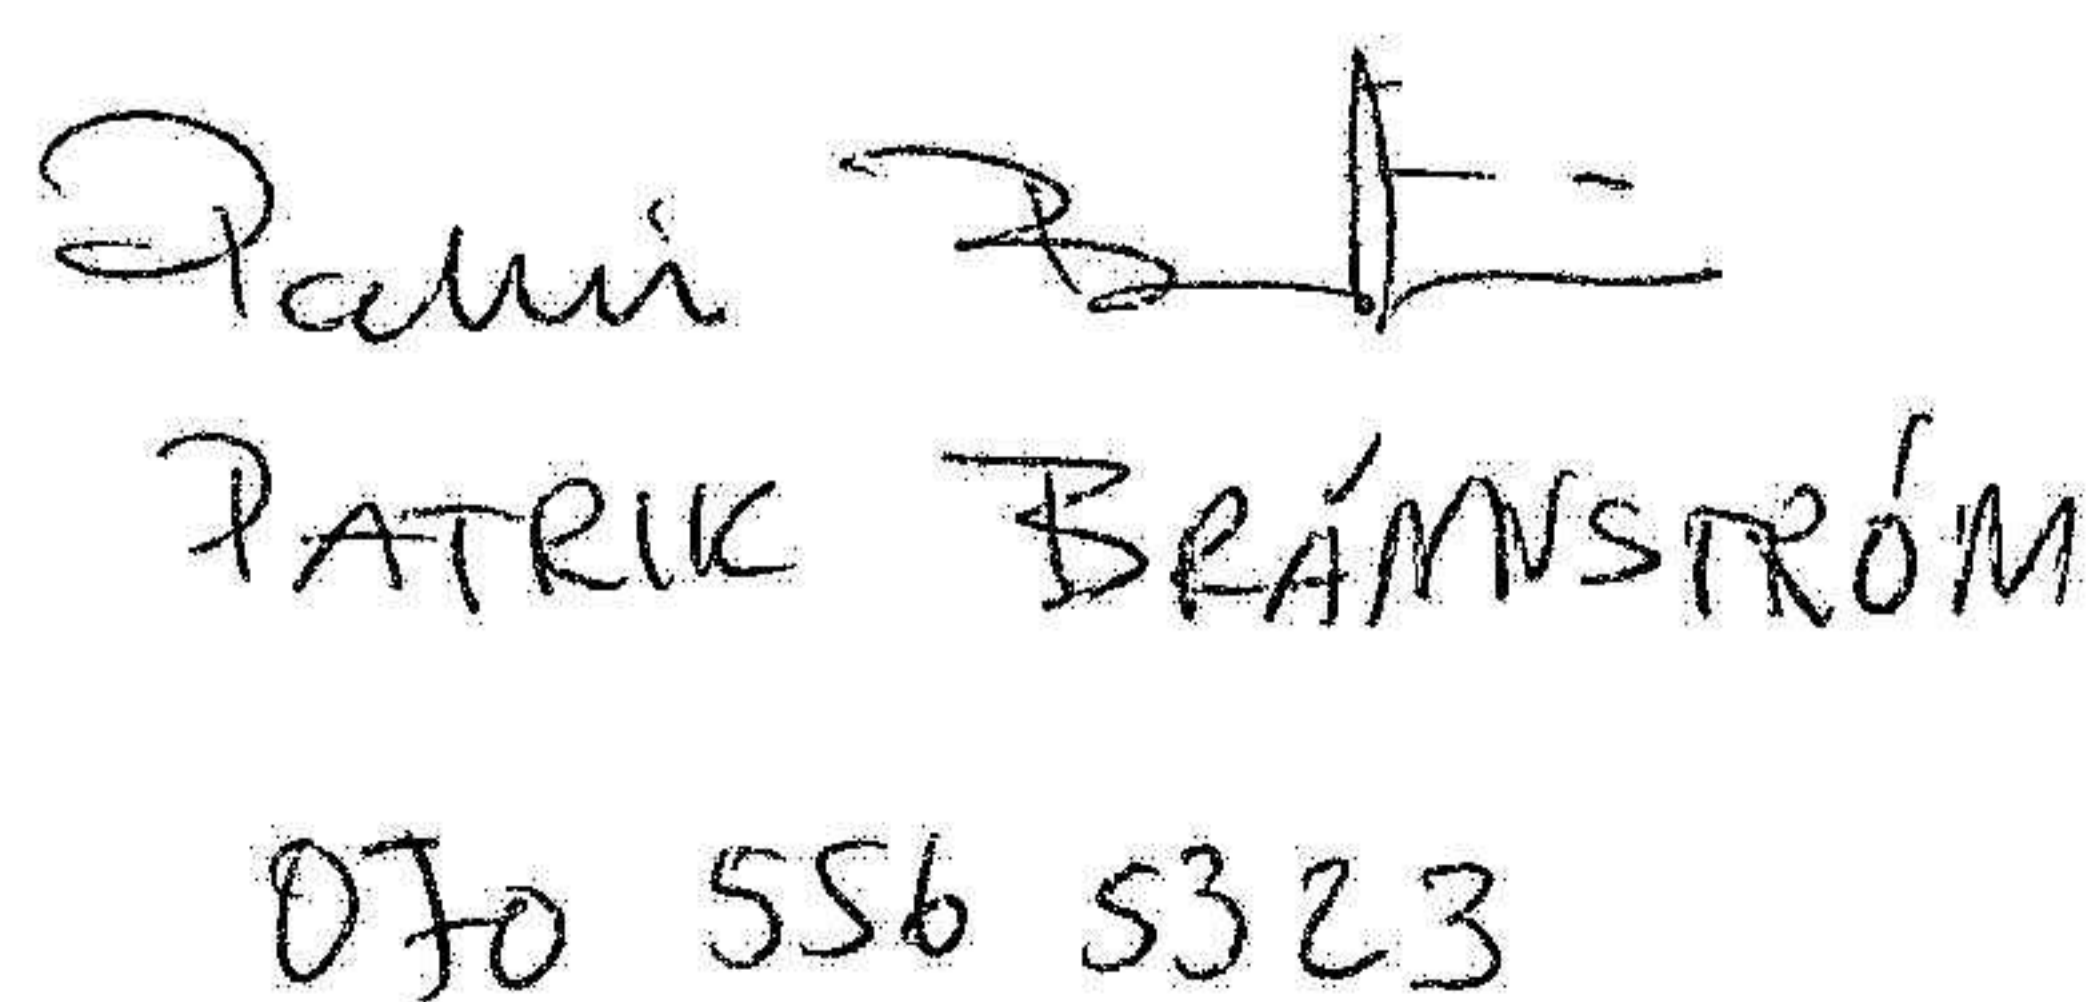 Patrik
PATRIK BRÁMNSTRÓM
070 556 5323